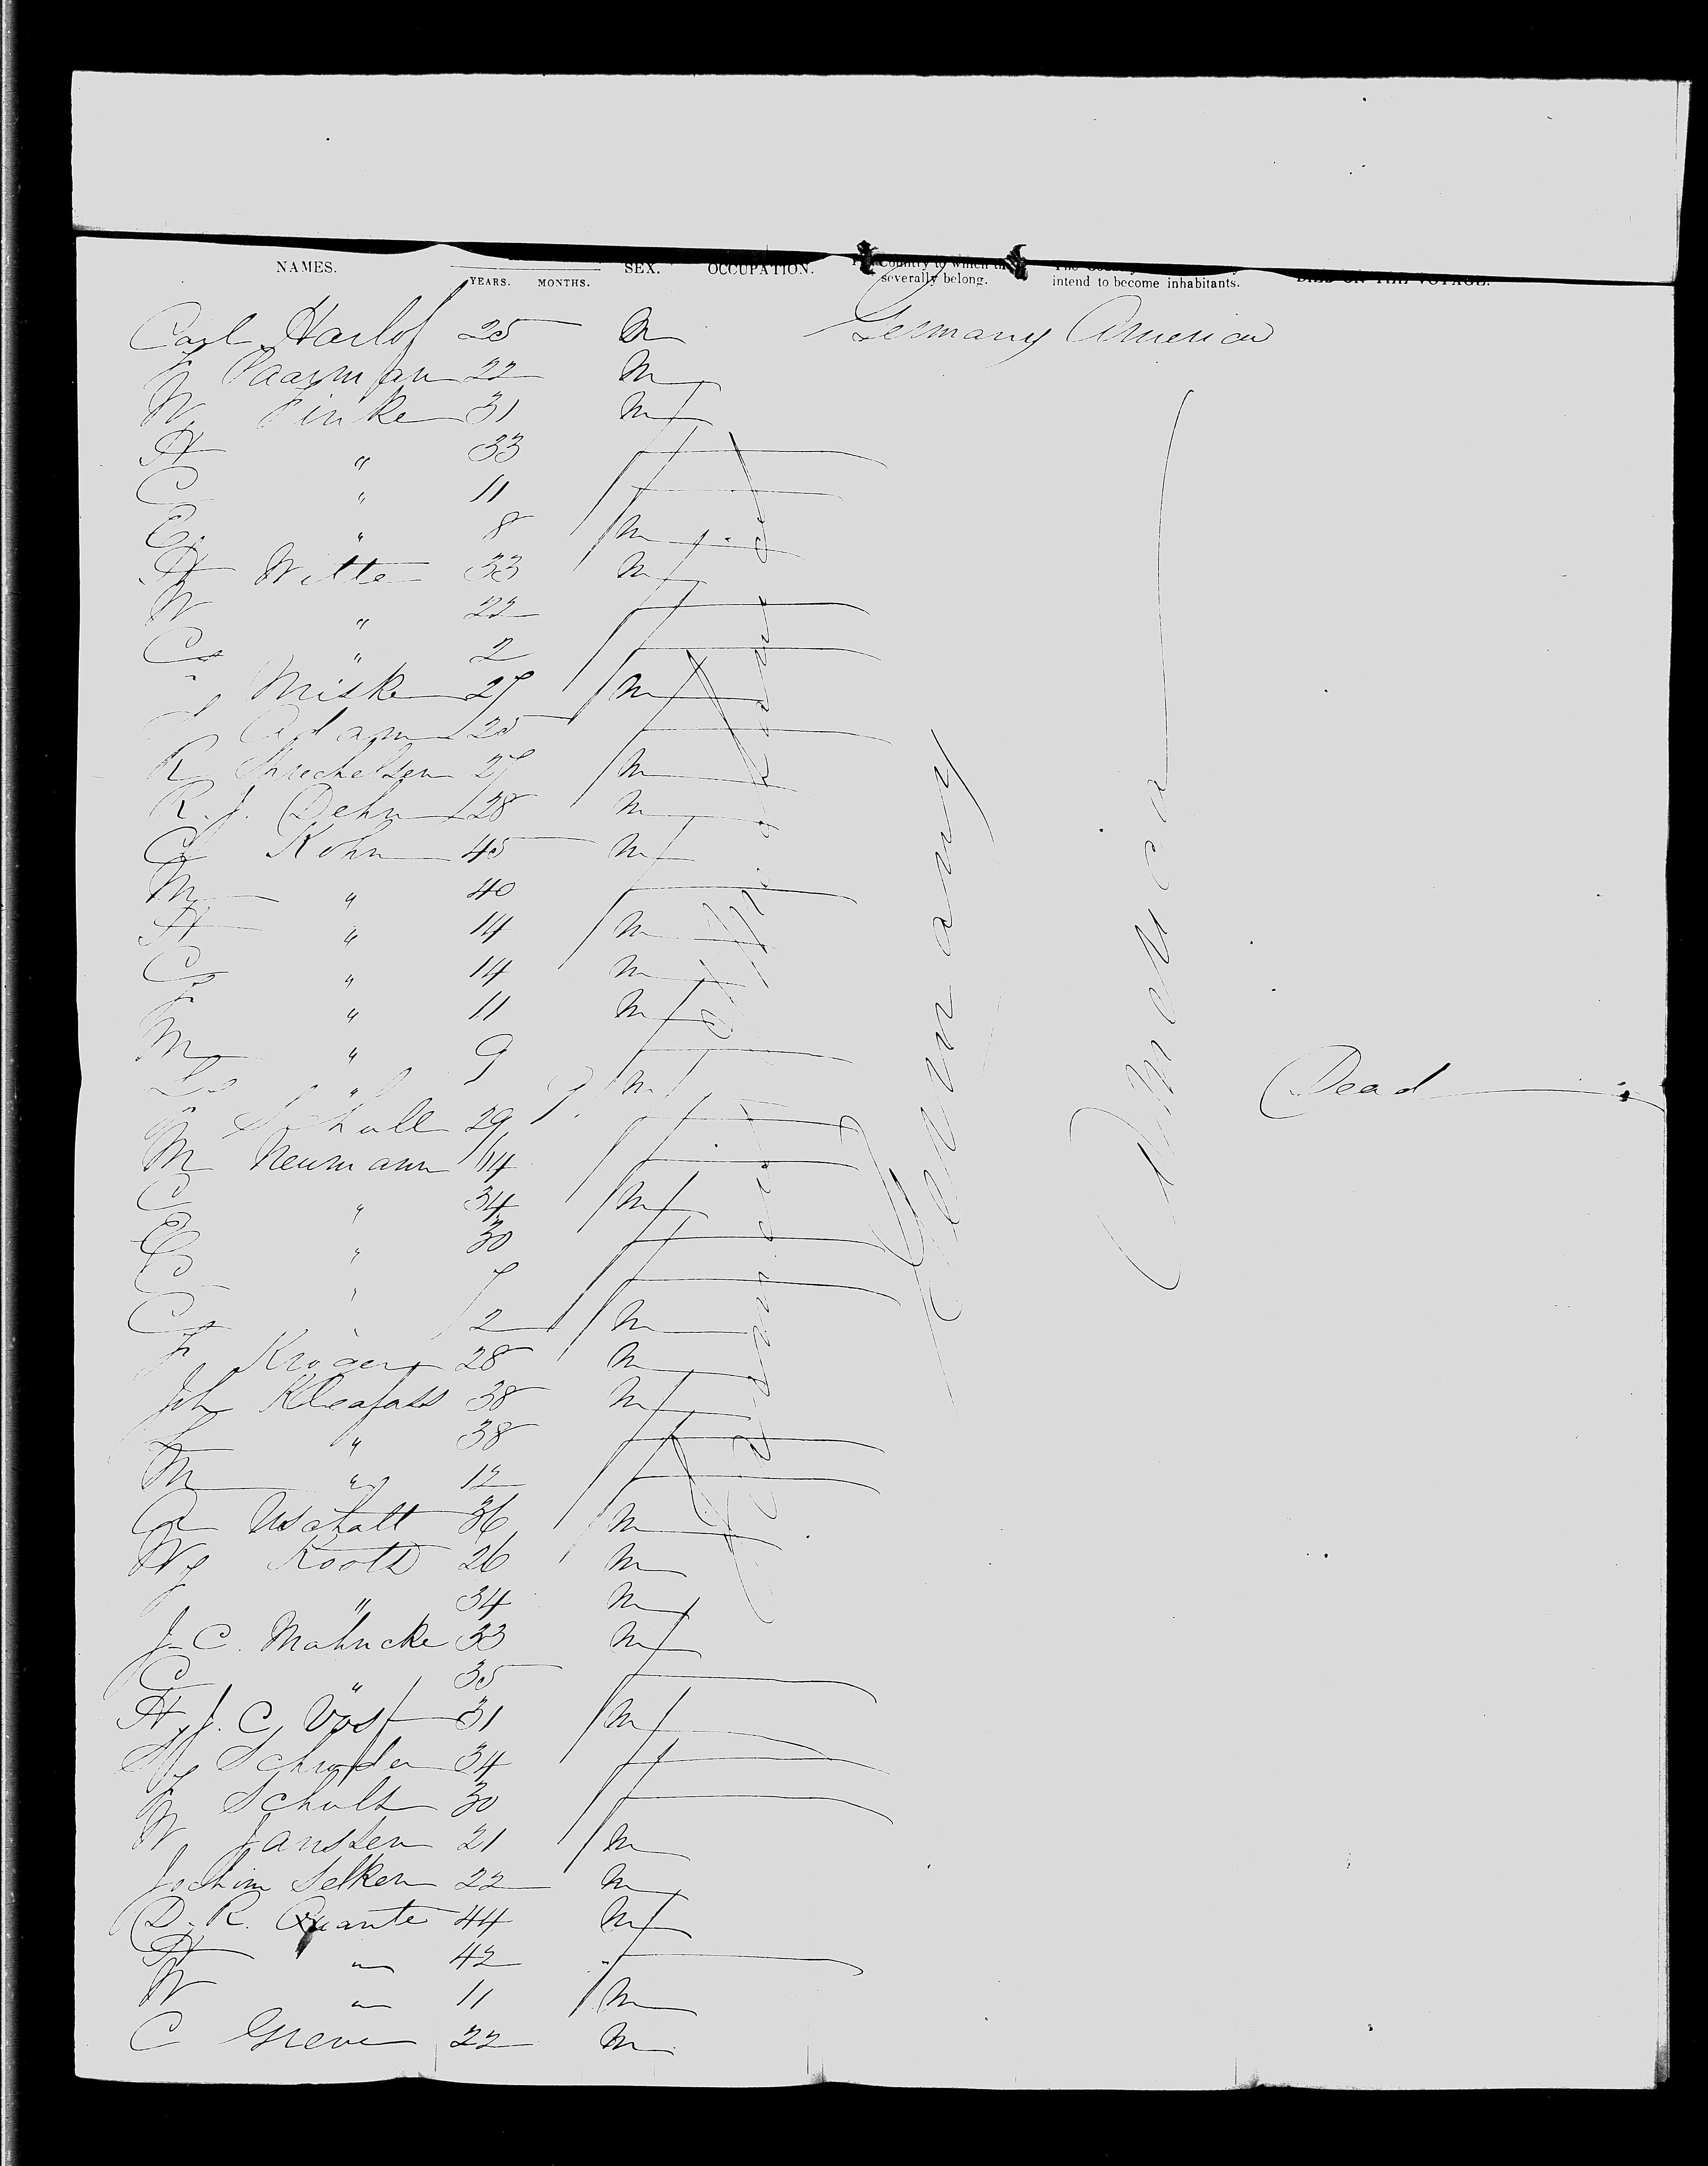 NAMES. YEARS. MONTHS. SEX. OCCUPATION. Country to which severally belong. intend to become inhabitants. DIED ON THE VOYAGE.
Carl Harlof 25 M Germany America
F Paarman 22 M
W Finke 31 M
H " 33 F
C " 11 F
C " 8 M
H Witte 33 M
W " 22 F
C " 2 F
Miske 27 M
Adam 25 F
R 27 M
R. J. Dehn 28 M
C Kohn 45 M
M " 40 F
H " 14 M
C " 14 M
F " 11 M
M " 9 F
L " 9 M Dead
29 F
M Neumann 14 F
C " 34 M
E " 30 F
C " 7 F
C " 2 M
F Kroger 28 M
Joh Kleafass 38 M
" 38 F
M " 12 F
36 M
W 26 M
" 34 M
J. C. Mahncke 33 M
C " 35 F
H. J. C. Vos 31 M
Schroder 34 F
F Schult 30 F
W Janssen 21 M
Jochim Selken 22 M
D. R. Quante 44 M
H " 42 F
W " 11 M
C Greve 22 M
Germany
America